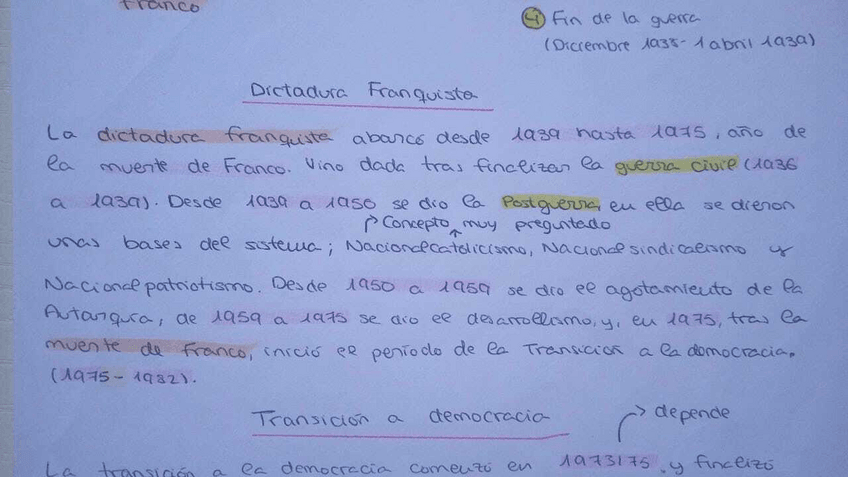 Franco
④ Fin de la guerra
(Diciembre 1938 - 1 abril 1939)
Dictadura Franquista
La dictadura franquista abarcó desde 1939 hasta 1975, año de
la muerte de Franco. Vino dada tras finalizar la guerra civil (1936
a 1939). Desde 1939 a 1950 se dio la Postguerra, en ella se dieron
↱ Concepto muy preguntado
unas bases del sistema; Nacionalcatolicismo, Nacionalsindicalismo y
Nacionalpatriotismo. Desde 1950 a 1959 se dio el agotamiento de la
Autarquía, de 1959 a 1975 se dio el desarrollismo, y, en 1975, tras la
muerte de Franco, inició el período de la Transición a la democracia.
(1975 - 1982).
Transición a democracia
→ depende
La transición a la democracia comenzó en 1973/75, y finalizó